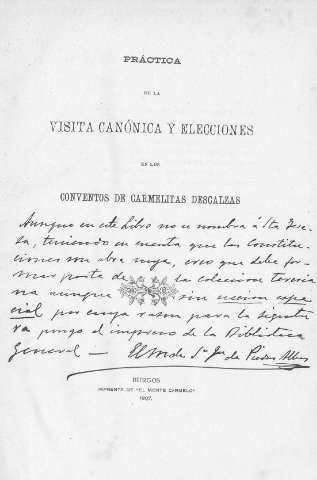 PRÁCTICA
DE LA
VISITA CANÓNICA Y ELECCIONES
EN LOS
CONVENTOS DE CARMELITAS DESCALZAS
Aunque en este libro no se nombra á Sta Tere-
sa, teniendo en cuenta que las Constitu-
ciones son obra suya, creo que debe for-
mar parte de la coleccion teresia
na aunque sin seccion espe
cial por cuya razon para la signatu
ra pongo el impreso de la Biblioteca
General — El M de Sn Jn de Piedras Albas
BURGOS
IMPRENTA DE «EL MONTE CARMELO»
1907.